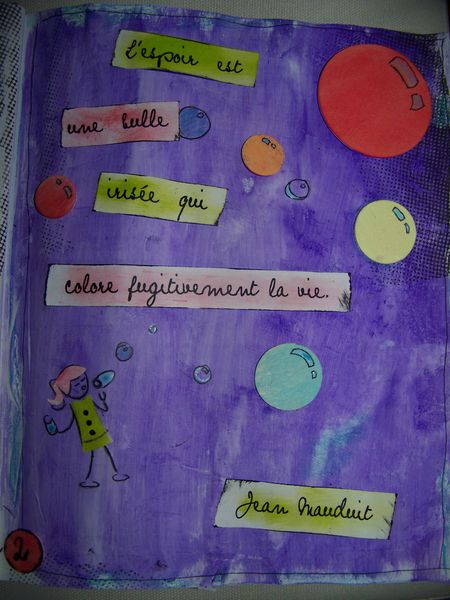 L'espoir est
une bulle
irisée qui
colore fugitivement la vie.
Jean Mauduit
2